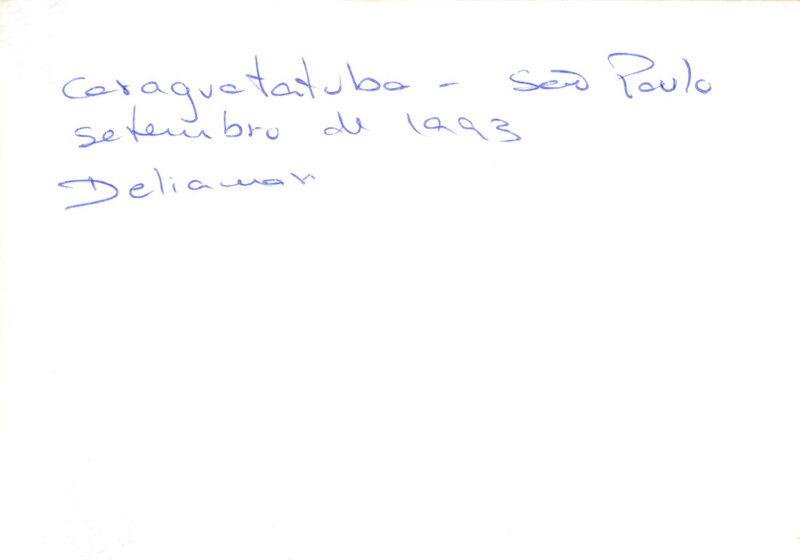 Caraguatatuba - São Paulo
setembro de 1993
Deliamar